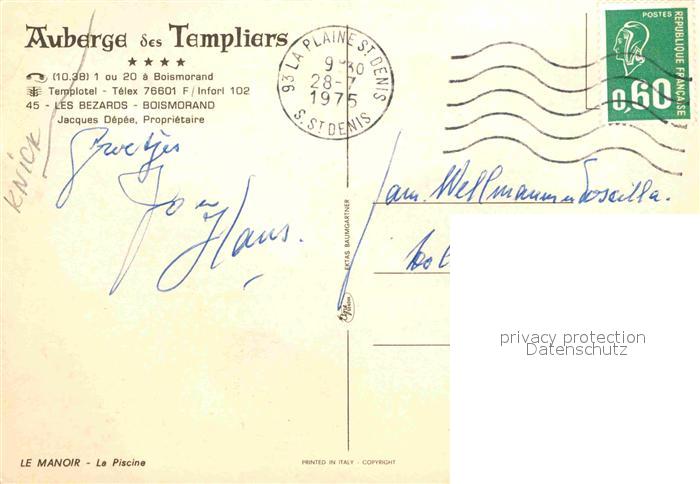 Auberge des Templiers
★★★★
(10.38) 1 ou 20 à Boismorand
Templotel - Télex 76601 F / Inforl 102
45 - LES BEZARDS - BOISMORAND
Jacques Dépée, Propriétaire
93 LA PLAINE ST DENIS
9H30
28-7
1975
S. ST DENIS
POSTES
REPUBLIQUE FRANÇAISE
0,60
KNICK
Groetjes
Jo en
Hans.
Fam. Wellmann
EKTAS BAUMGARTNER
privacy protection
Datenschutz
LE MANOIR - La Piscine
PRINTED IN ITALY - COPYRIGHT